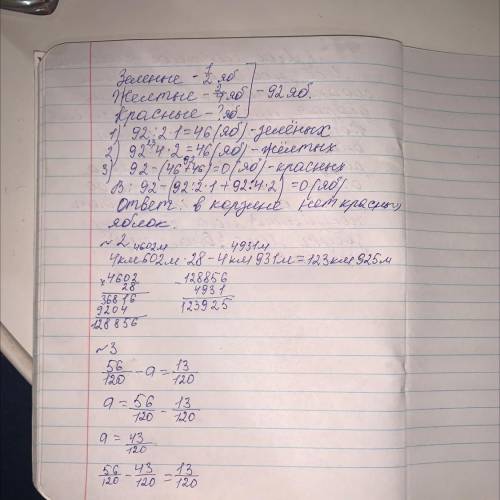 Зеленые - 1/2 яб
Желтые - 2/4 яб - 92 яб.
Красные - ? яб
1) 92 : 2 · 1 = 46 (яб) - зелёных
2) 92 : 4 · 2 = 46 (яб) - жёлтых
3) 92 - (46 + 46) = 0 (яб) - красных
В: 92 - (92 : 2 · 1 + 92 : 4 · 2) = 0 (яб)
Ответ: в корзине нет красных
яблок.
~ 2 4602м 4931м
4км602м · 28 - 4км 931м = 123км 925м
×4602 -128856
28 4931
36816 123925
9204
128856
~ 3
56/120 - a = 13/120
a = 56/120 - 13/120
a = 43/120
56/120 - 43/120 = 13/120